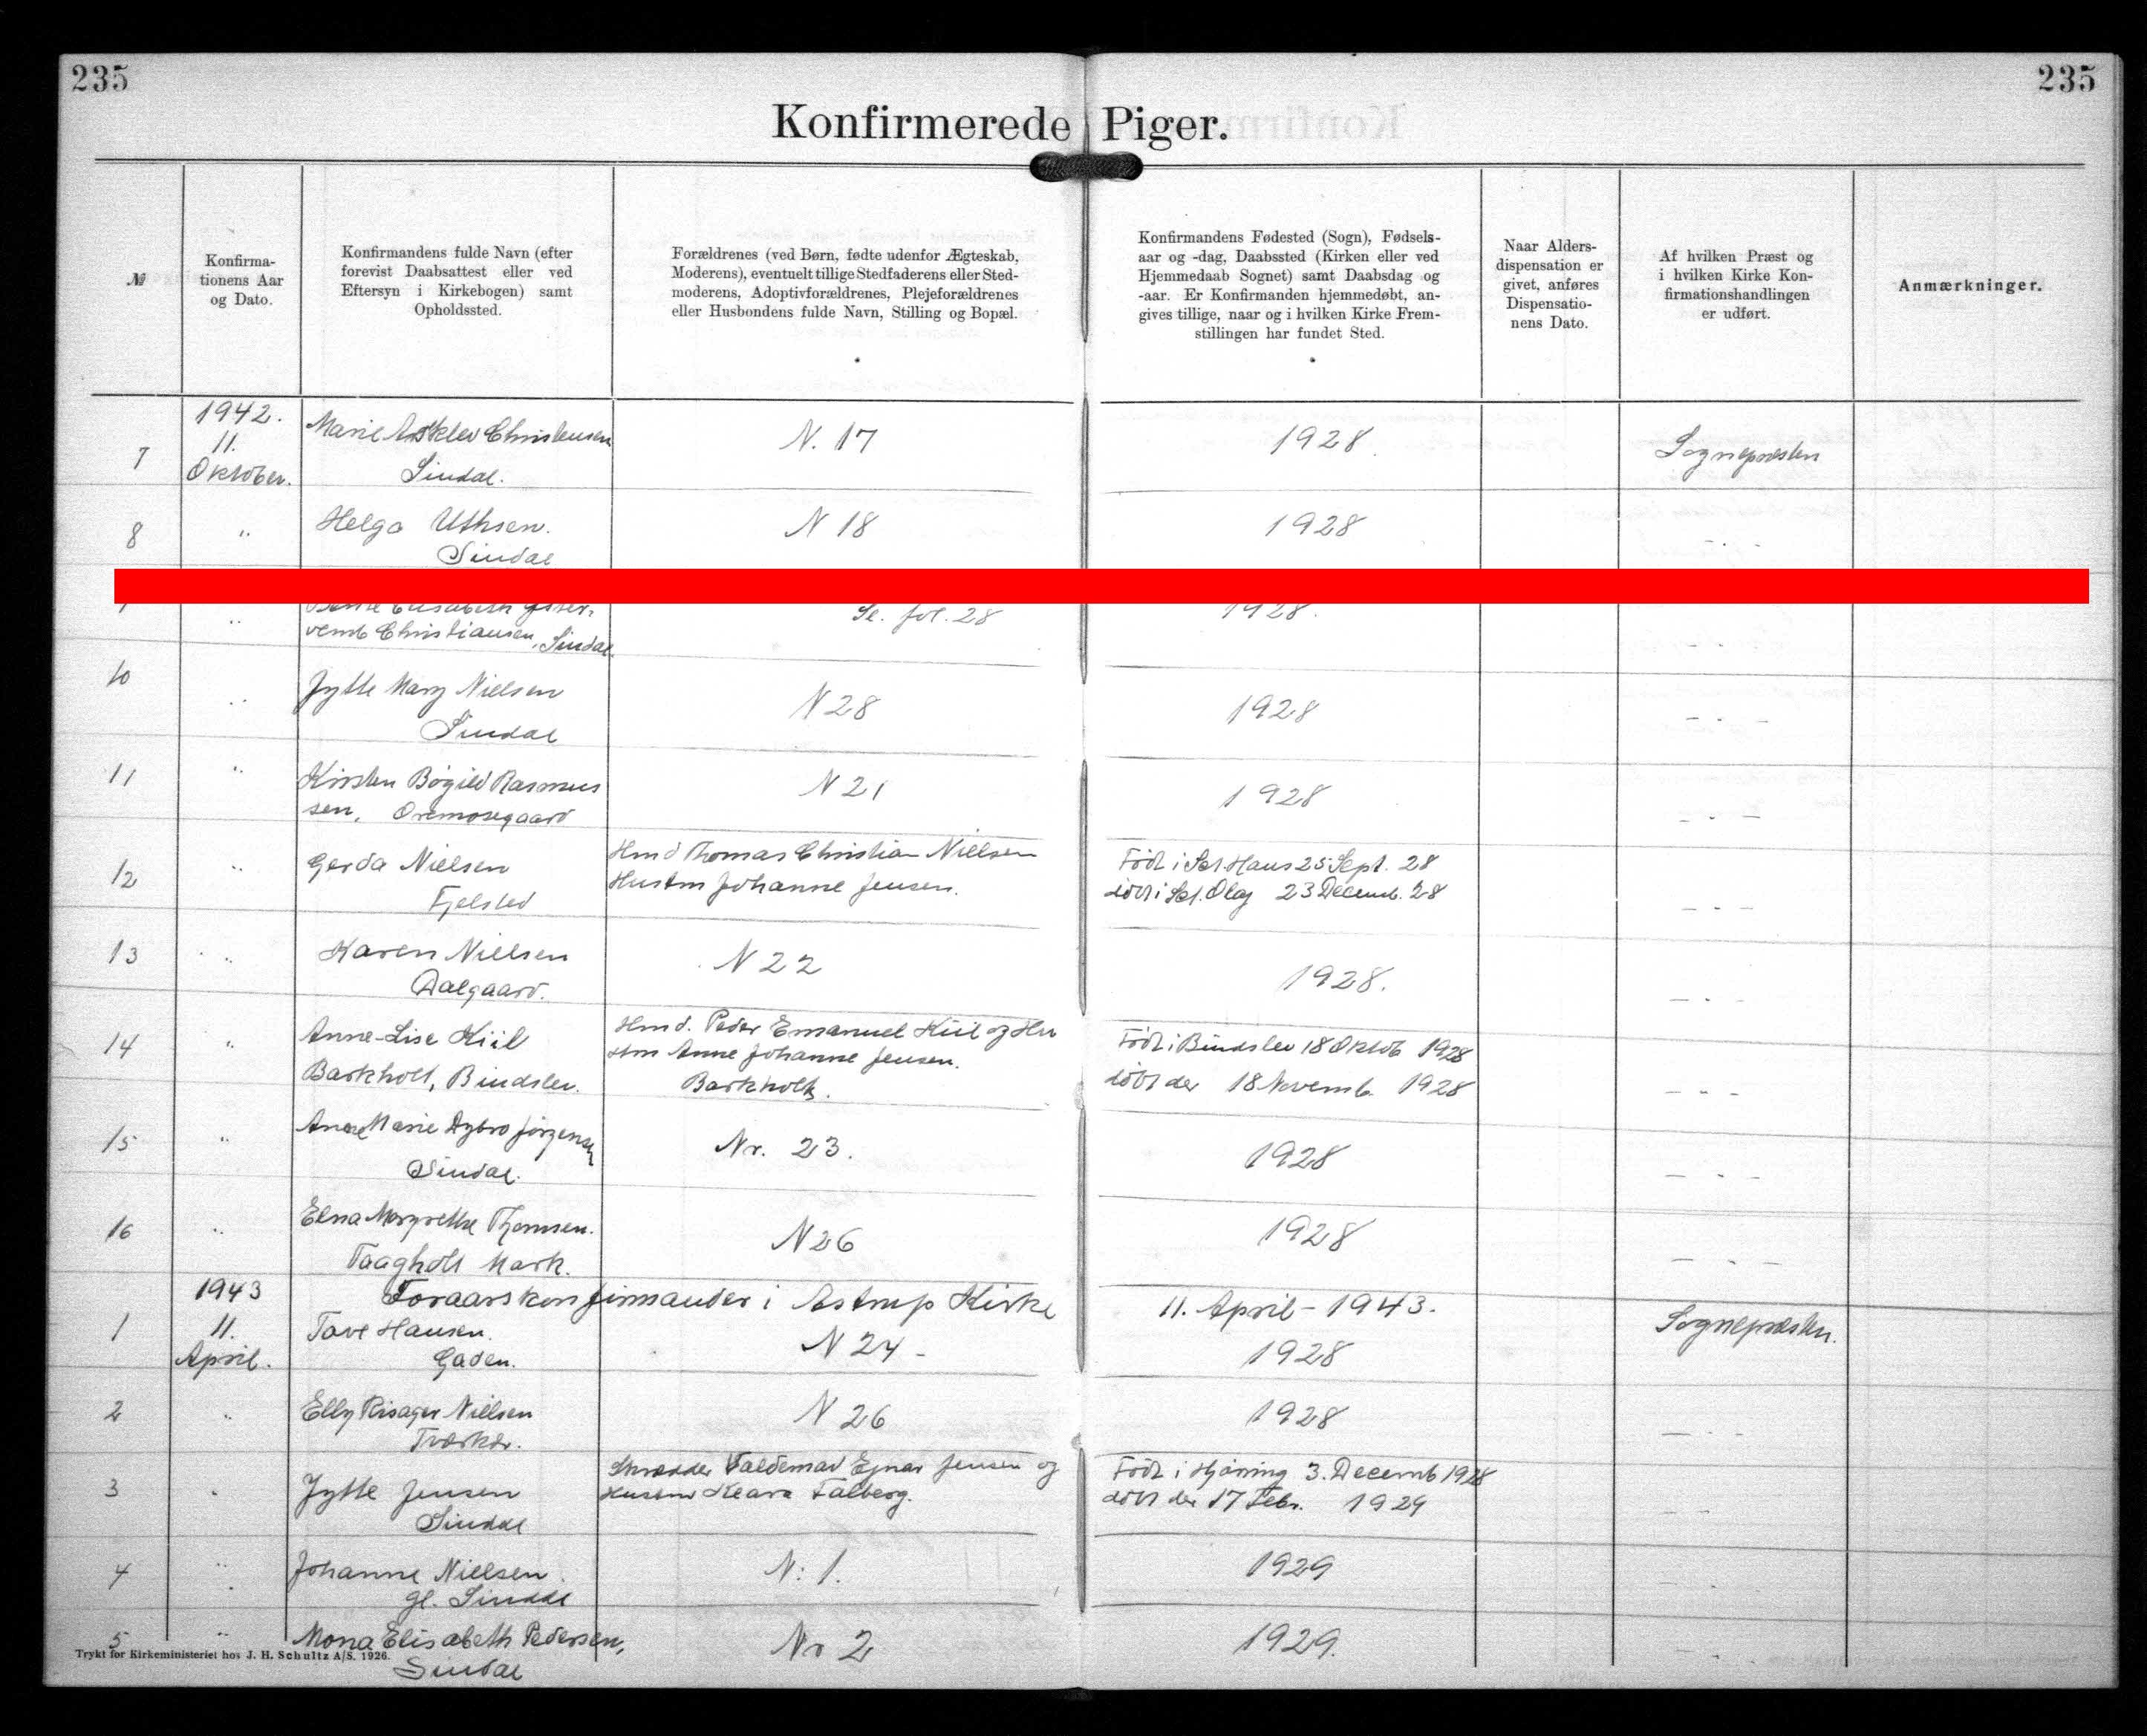 235
235
Konfirmerede Piger.
№
Konfirma-
tionens Aar
og Dato.
Konfirmandens fulde Navn (efter
forevist Daabsattest eller ved
Eftersyn i Kirkebogen) samt
Opholdssted.
Forældrenes (ved Børn, fødte udenfor Ægteskab,
Moderens), eventuelt tillige Stedfaderens eller Sted-
moderens, Adoptivforældrenes, Plejeforældrenes
eller Husbondens fulde Navn, Stilling og Bopæl.
Konfirmandens Fødested (Sogn), Fødsels-
aar og -dag, Daabssted (Kirken eller ved
Hjemmedaab Sognet) samt Daabsdag og
-aar. Er Konfirmanden hjemmedøbt, an-
gives tillige, naar og i hvilken Kirke Frem-
stillingen har fundet Sted.
Naar Alders-
dispensation er
givet, anføres
Dispensatio-
nens Dato.
Af hvilken Præst og
i hvilken Kirke Kon-
firmationshandlingen
er udført.
Anmærkninger.
7
1942.
11.
Oktober.
Marie Asklev Christensen
Sindal.
N. 17
1928.
Sognepræsten
8
"
Helga Uthsen.
Sindal
N 18
1928
- . -
"
vemb Christiansen, Sindal.
Se. fol. 28
1928.
- . -
10
"
Jytte Mary Nielsen
Sindal
N 28
1928
- . -
11
"
Kirsten Bögild Rasmus
sen, Oremosegaard
N 21
1928
- . -
12
"
Gerda Nielsen
Fjelsted
Hmd Thomas Christian Nielsen
Hustru Johanne Jensen.
Född i Sct. Hans 25 Sept. 28
döbt i Sct. Olaj 23 Decemb. 28
- . -
13
"
Karen Nielsen
Dalgaard.
N 22
1928.
- . -
14
"
Anne-Lise Kiil
Barkholt, Bindslev.
Hmd. Peder Emanuel Kiil og Hu
stru Anne Johanne Jensen.
Barkholt.
Född i Bindslev 18 Oktob 1928
döbt der 18 Novemb. 1928
- - -
15
"
Anne Marie Dybro Jörgensen
Sindal.
Nr. 23.
1928
- . -
16
"
Elna Margrethe Thomsen.
Taagholt Mark.
N 26
1928
- . -
1943
Foraarskonfirmander i Astrup Kirke
11. April - 1943.
1
11.
April.
Tove Hansen.
Gaden.
N 24 -
1928
Sognepræsten.
2
"
Elly Risager Nielsen
Tværkær.
N 26
1928
- . -
3
"
Jytte Jensen
Sindal
Skrædder Valdemar Ejnar Jensen og
Hustru Klara Falberg.
Född i Hjörring 3. Decemb 1928
döbt der 17 Febr. 1929
- -
4
"
Johanne Nielsen.
gl. Sindal
N: 1.
1929
- . -
5
"
Mona Elisabeth Pedersen,
Sindal
Nr 2
1929.
- . -
Trykt for Kirkeministeriet hos J. H. Schultz A/S. 1926.